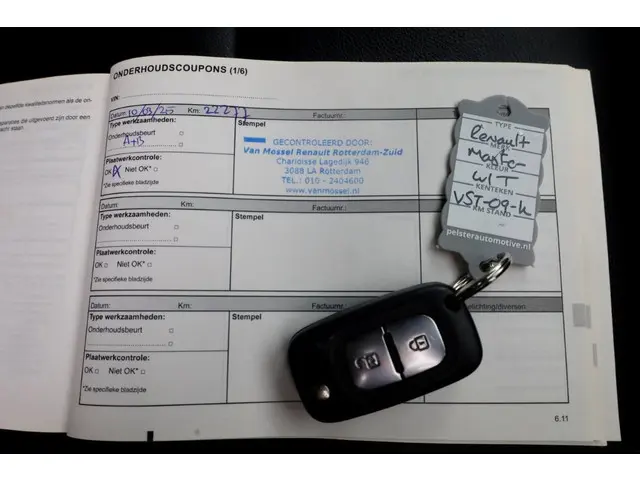 ONDERHOUDSCOUPONS (1/6)
VIN:
Datum: 10/03/25 Km: 22277 Factuurnr.:
Type werkzaamheden:
Onderhoudsbeurt
A+B
Plaatwerkcontrole:
OK X Niet OK*
*Zie specifieke bladzijde
Stempel
GECONTROLEERD DOOR:
Van Mossel Renault Rotterdam-Zuid
Charloisse Lagedijk 946
3088 LA Rotterdam
TEL.: 010 - 2404600
www.vanmossel.nl
Datum: Km: Factuurnr.:
Type werkzaamheden:
Onderhoudsbeurt
Plaatwerkcontrole:
OK Niet OK*
*Zie specifieke bladzijde
Stempel
Datum: Km: Factuurnr.:
Type werkzaamheden:
Onderhoudsbeurt
Plaatwerkcontrole:
OK Niet OK*
*Zie specifieke bladzijde
Stempel
6.11
TYPE
Renault
MERK
Master
KLEUR
WIT
KENTEKEN
VST-09-K
KM STAND
pelsterautomotive.nl